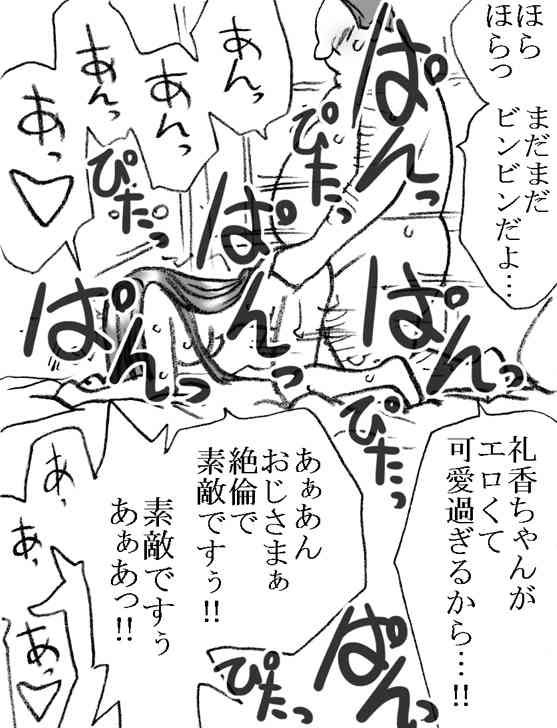 ほら
ほらっ
まだまだ
ビンビンだよ…
ぱんっ
ぴたっ
あんっ
あんっ
あんっ
あっ♡
ぴたっ
ぱんっ
ぱんっ
ぱんっ
ぴたっ
礼香ちゃんが
エロくて
可愛過ぎるから…!!
あぁあん
おじさまぁ
絶倫で
素敵ですぅ!!
素敵ですぅ
あぁあっ!!
あ、
あ、
あっ♡
ぱんっ
ぴたっ